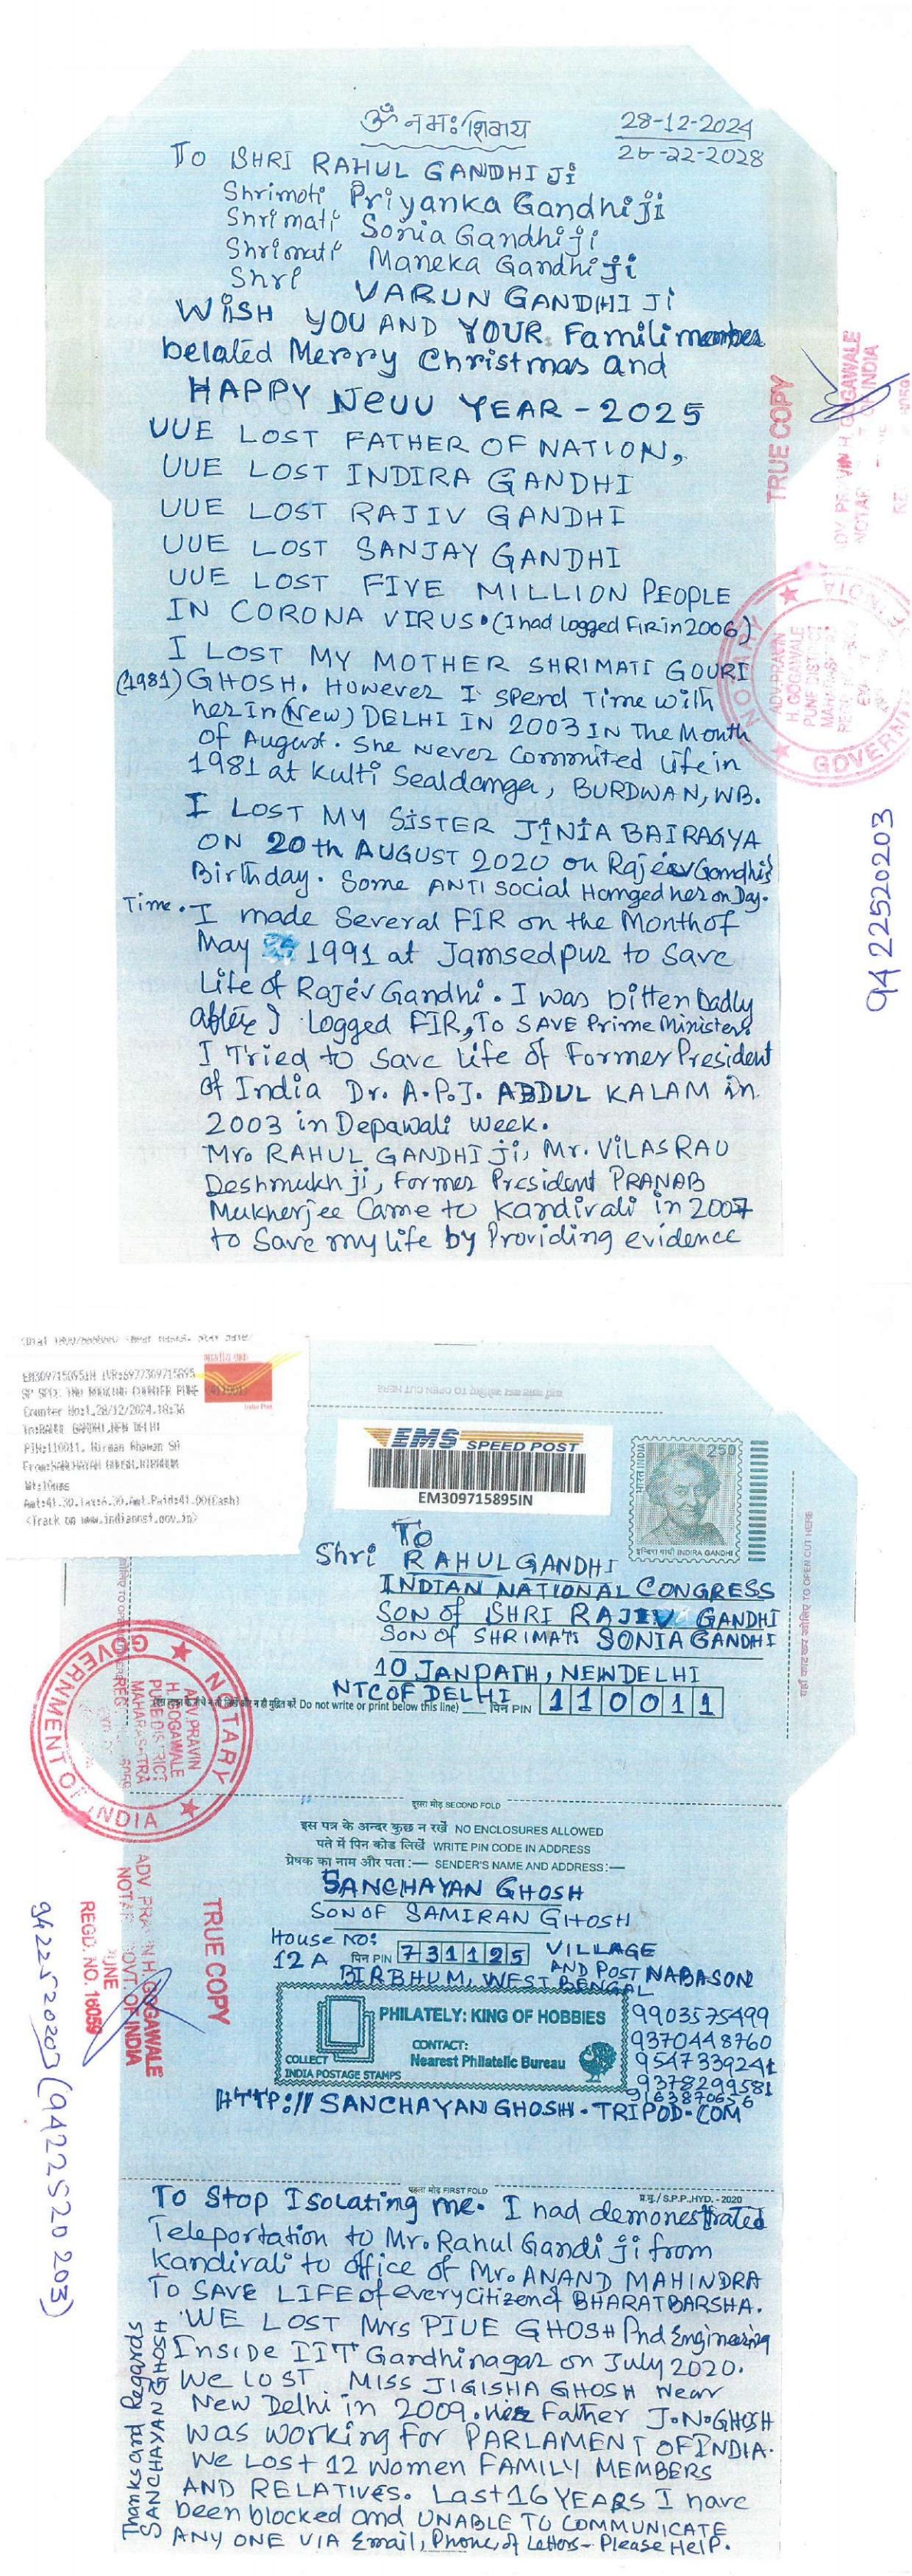 ॐ नमः शिवाय
28-12-2024
28-22-2028
TO SHRI RAHUL GANDHI Ji
Shrimoti Priyanka Gandhi ji
Shrimati Sonia Gandhi ji
Shrimati Maneka Gandhi ji
Shri VARUN GANDHI Ji
WiSH YOU AND YOUR Famili member
belated Merry Christmas and
HAPPY NeUU YEAR - 2025
UUE LOST FATHER OF NATION,
UUE LOST INDIRA GANDHI
UUE LOST RAJIV GANDHI
UUE LOST SANJAY GANDHI
UUE LOST FIVE MILLION PEOPLE
IN CORONA VIRUS. (I had Logged FiR in 2006)
I LOST MY MOTHER SHRIMATI GOURI
(1981) GHOSH. However I Spend Time with
her In (New) DELHI IN 2003 IN The Month
of August. She Never Commited life in
1981 at Kulti Sealdanga, BURDWAN, WB.
I LOST MY SiSTER JINIA BAIRAGYA
ON 20th AUGUST 2020 on Rajeev Gandhis
Birthday. Some ANTI social Hamged her on Day.
Time. I made Several FIR on the Month of
May 1991 at Jamsedpur to Save
Life of Rajev Gandhi. I was bitten badly
after I Logged FIR, To SAVE Prime Minister.
I Tried to Save life of Former President
of India Dr. A.P.J. ABDUL KALAM in
2003 in Depawali Week.
Mr. RAHUL GANDHI Ji, Mr. ViLASRAO
Deshmukh ji, Former President PRANAB
Mukherjee Came to Kandivali in 2007
to Save my life by Providing evidence
TRUE COPY
NOTARY
ADV. PRAVIN
H. GOGAWALE
PUNE DISTRICT
GOVERNMENT
9422520203
EM309715895IN IVR:6977309715895
Counter No:1,28/12/2024,18:36
PIN:110011, Nirman Bhawan SO
(Track on www.indiapost.gov.in)
India Post
EMS SPEED POST
EM309715895IN
भारत INDIA
250
इन्दिरा गांधी INDIRA GANDHI
TO OPEN CUT HERE
To
Shri RAHUL GANDHI
INDIAN NATIONAL CONGRESS
SON of SHRI RAJEEV GANDHI
SON of SHRIMATI SONIA GANDHI
10 JANPATH, NEW DELHI
NTC OF DELHI
Do not write or print below this line)
पिन PIN 110011
NOTARY
GOVERNMENT OF INDIA
ADV. PRAVIN
H. GOGAWALE
PUNE DISTRICT
MAHARASTRA
दूसरा मोड़ SECOND FOLD
इस पत्र के अन्दर कुछ न रखें NO ENCLOSURES ALLOWED
पते में पिन कोड लिखें WRITE PIN CODE IN ADDRESS
प्रेषक का नाम और पता :— SENDER'S NAME AND ADDRESS :—
SANCHAYAN GHOSH
SON OF SAMIRAN GHOSH
House NO:
12 A पिन PIN 731125 VILLAGE
AND POST NABASON
BIRBHUM, WEST BENGAL
PHILATELY: KING OF HOBBIES
CONTACT:
Nearest Philatelic Bureau
COLLECT
INDIA POSTAGE STAMPS
9903575499
9370448760
9547339241
9378299581
9163870656
HTTP://SANCHAYANGHOSH.TRIPOD.COM
TRUE COPY
REGD. NO. 16059
9422520203 (9422520203)
पहला मोड़ FIRST FOLD
प्र.मु./S.P.P.,HYD. - 2020
To Stop Isolating me. I had demonestrated
Teleportation to Mr. Rahul Gandi ji from
Kandivali to office of Mr. ANAND MAHINDRA
TO SAVE LIFE of every Citizen of BHARATBARSHA.
WE LOST Mrs PIUE GHOSH Phd Engineering
Inside IIT Gandhinagar on July 2020.
We lost MISS JIGISHA GHOSH Near
New Delhi in 2009. Her Father J.N. GHOSH
was working for PARLAMENT OF INDIA.
We Lost 12 women FAMILY MEMBERS
AND RELATIVES. Last 16 YEARS I have
been blocked and UNABLE TO COMMUNICATE
ANY ONE VIA Email, Phone, of Letters - Please Help.
Thanks and Regards
SANCHAYAN GHOSH